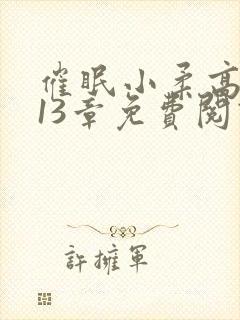 催眠小柔高
13章免費閱
許擁軍